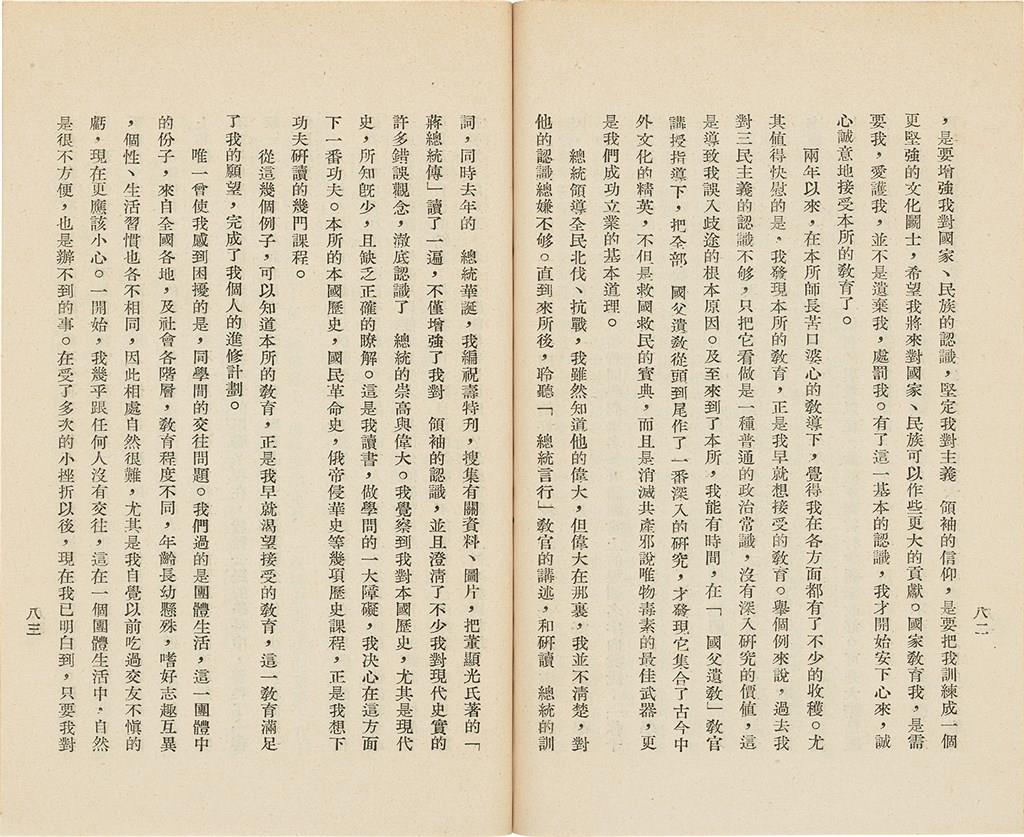 ，是要增強我對國家、民族的認識，堅定我對主義　領袖的信仰，是要把我訓練成一個
更堅強的文化鬭士，希望我將來對國家、民族可以作些更大的貢獻。國家敎育我，是需
要我，愛護我，並不是遺棄我，處罰我。有了這一基本的認識，我才開始安下心來，誠
心誠意地接受本所的敎育了。
兩年以來，在本所師長苦口婆心的敎導下，覺得我在各方面都有了不少的收穫。尤
其値得快慰的是，我發現本所的敎育，正是我早就想接受的敎育。舉個例來說，過去我
對三民主義的認識不够，只把它看做是一種普通的政治常識，沒有深入硏究的價値，這
是導致我誤入歧途的根本原因。及至來到了本所，我能有時間，在「　國父遺敎」敎官
講授指導下，把全部　國父遺敎從頭到尾作了一番深入的硏究，才發現它集合了古今中
外文化的精英，不但是救國救民的寶典，而且是消滅共產邪說唯物毒素的最佳武器，更
是我們成功立業的基本道理。
總統領導全民北伐、抗戰，我雖然知道他的偉大，但偉大在那裏，我並不清楚，對
他的認識總嫌不够。直到來所後，聆聽「　總統言行」敎官的講述，和硏讀　總統的訓
八二
詞，同時去年的　總統華誕，我編祝壽特刋，搜集有關資料、圖片，把董顯光氏著的「
蔣總統傳」讀了一遍，不僅增強了我對　領袖的認識，並且澄淸了不少我對現代史實的
許多錯誤觀念，澈底認識了　總統的崇高與偉大。我覺察到我對本國歷史，尤其是現代
史，所知旣少，且缺乏正確的瞭解。這是我讀書，做學問的一大障礙，我決心在這方面
下一番功夫。本所的本國歷史，國民革命史，俄帝侵華史等幾項歷史課程，正是我想下
功夫硏讀的幾門課程。
從這幾個例子，可以知道本所的敎育，正是我早就渴望接受的敎育，這一敎育滿足
了我的願望，完成了我個人的進修計劃。
唯一曾使我感到困擾的是，同學間的交往問題。我們過的是團體生活，這一團體中
的份子，來自全國各地，及社會各階層，敎育程度不同，年齡長幼懸殊，嗜好志趣互異
，個性、生活習慣也各不相同，因此相處自然很難，尤其是我自覺以前吃過交友不愼的
虧，現在更應該小心。一開始，我幾乎跟任何人沒有交往，這在一個團體生活中，自然
是很不方便，也是辦不到的事。在受了多次的小挫折以後，現在我已明白到，只要我對
八三